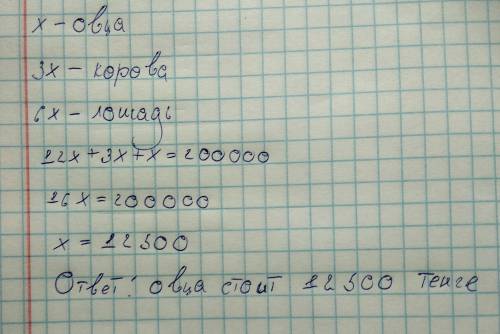 х - овца
3х - корова
6х - лошадь
12х + 3х + х = 200000
16х = 200000
х = 12500
Ответ: овца стоит 12500 тенге